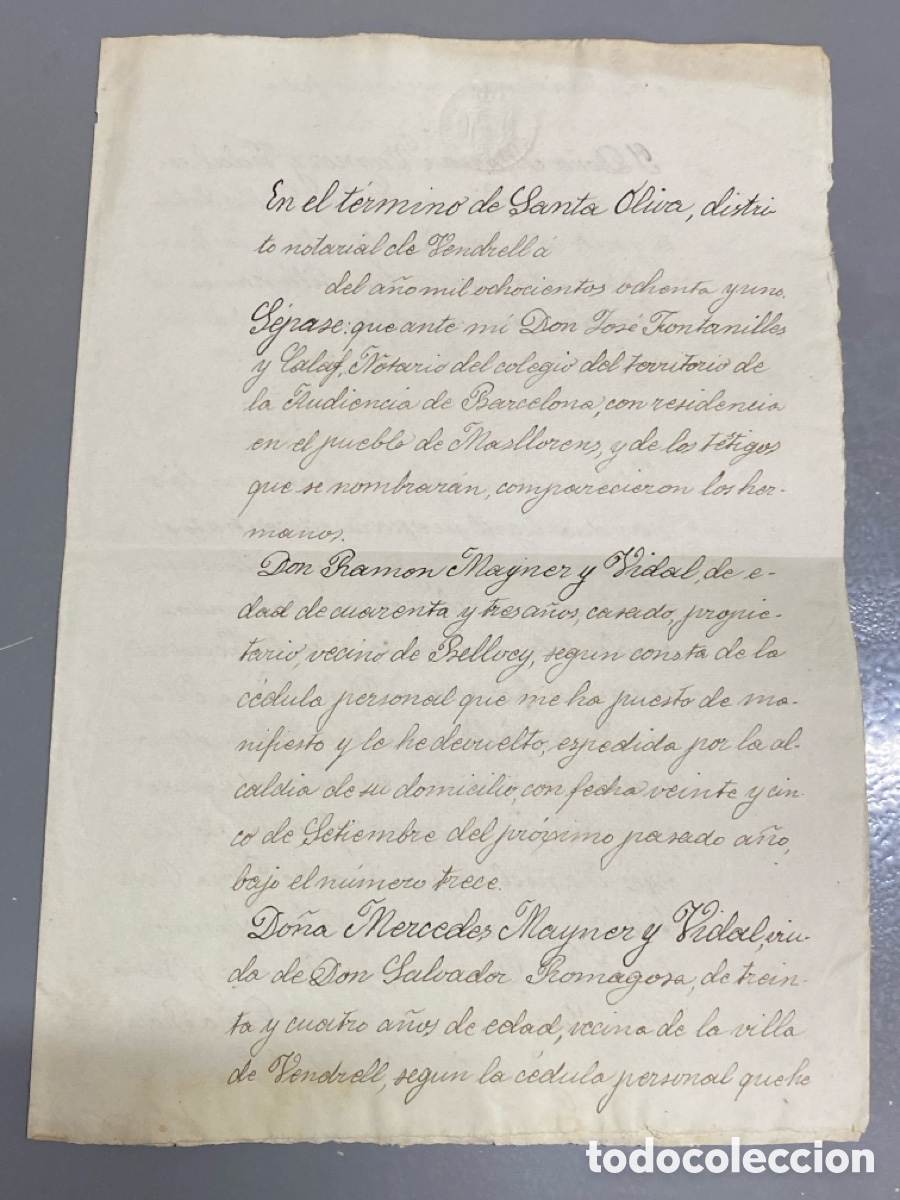 En el término de Santa Oliva, distri-
to notarial de Vendrell á
del año mil ochocientos ochenta y uno.
Sépase: que ante mí Don José Fontanilles
y Calaf, Notario del colegio del territorio de
la Audiencia de Barcelona, con residencia
en el pueblo de Masllorens, y de los tétigos
que se nombrarán, comparecieron los her-
manos.
Don Ramon Mayner y Vidal, de e-
dad de cuarenta y tres años, casado, propie-
tario, vecino de Bellvey, segun consta de la
cédula personal que me ha puesto de ma-
nifiesto y le he devuelto, expedida por la al-
caldia de su domicilio, con fecha veinte y cin-
co de Setiembre del próximo pasado año,
bajo el número trece.
Doña Mercedes Mayner y Vidal, viu-
da de Don Salvador Romagosa, de trein-
ta y cuatro años de edad, vecina de la villa
de Vendrell, segun la cédula personal que he
todocoleccion.net